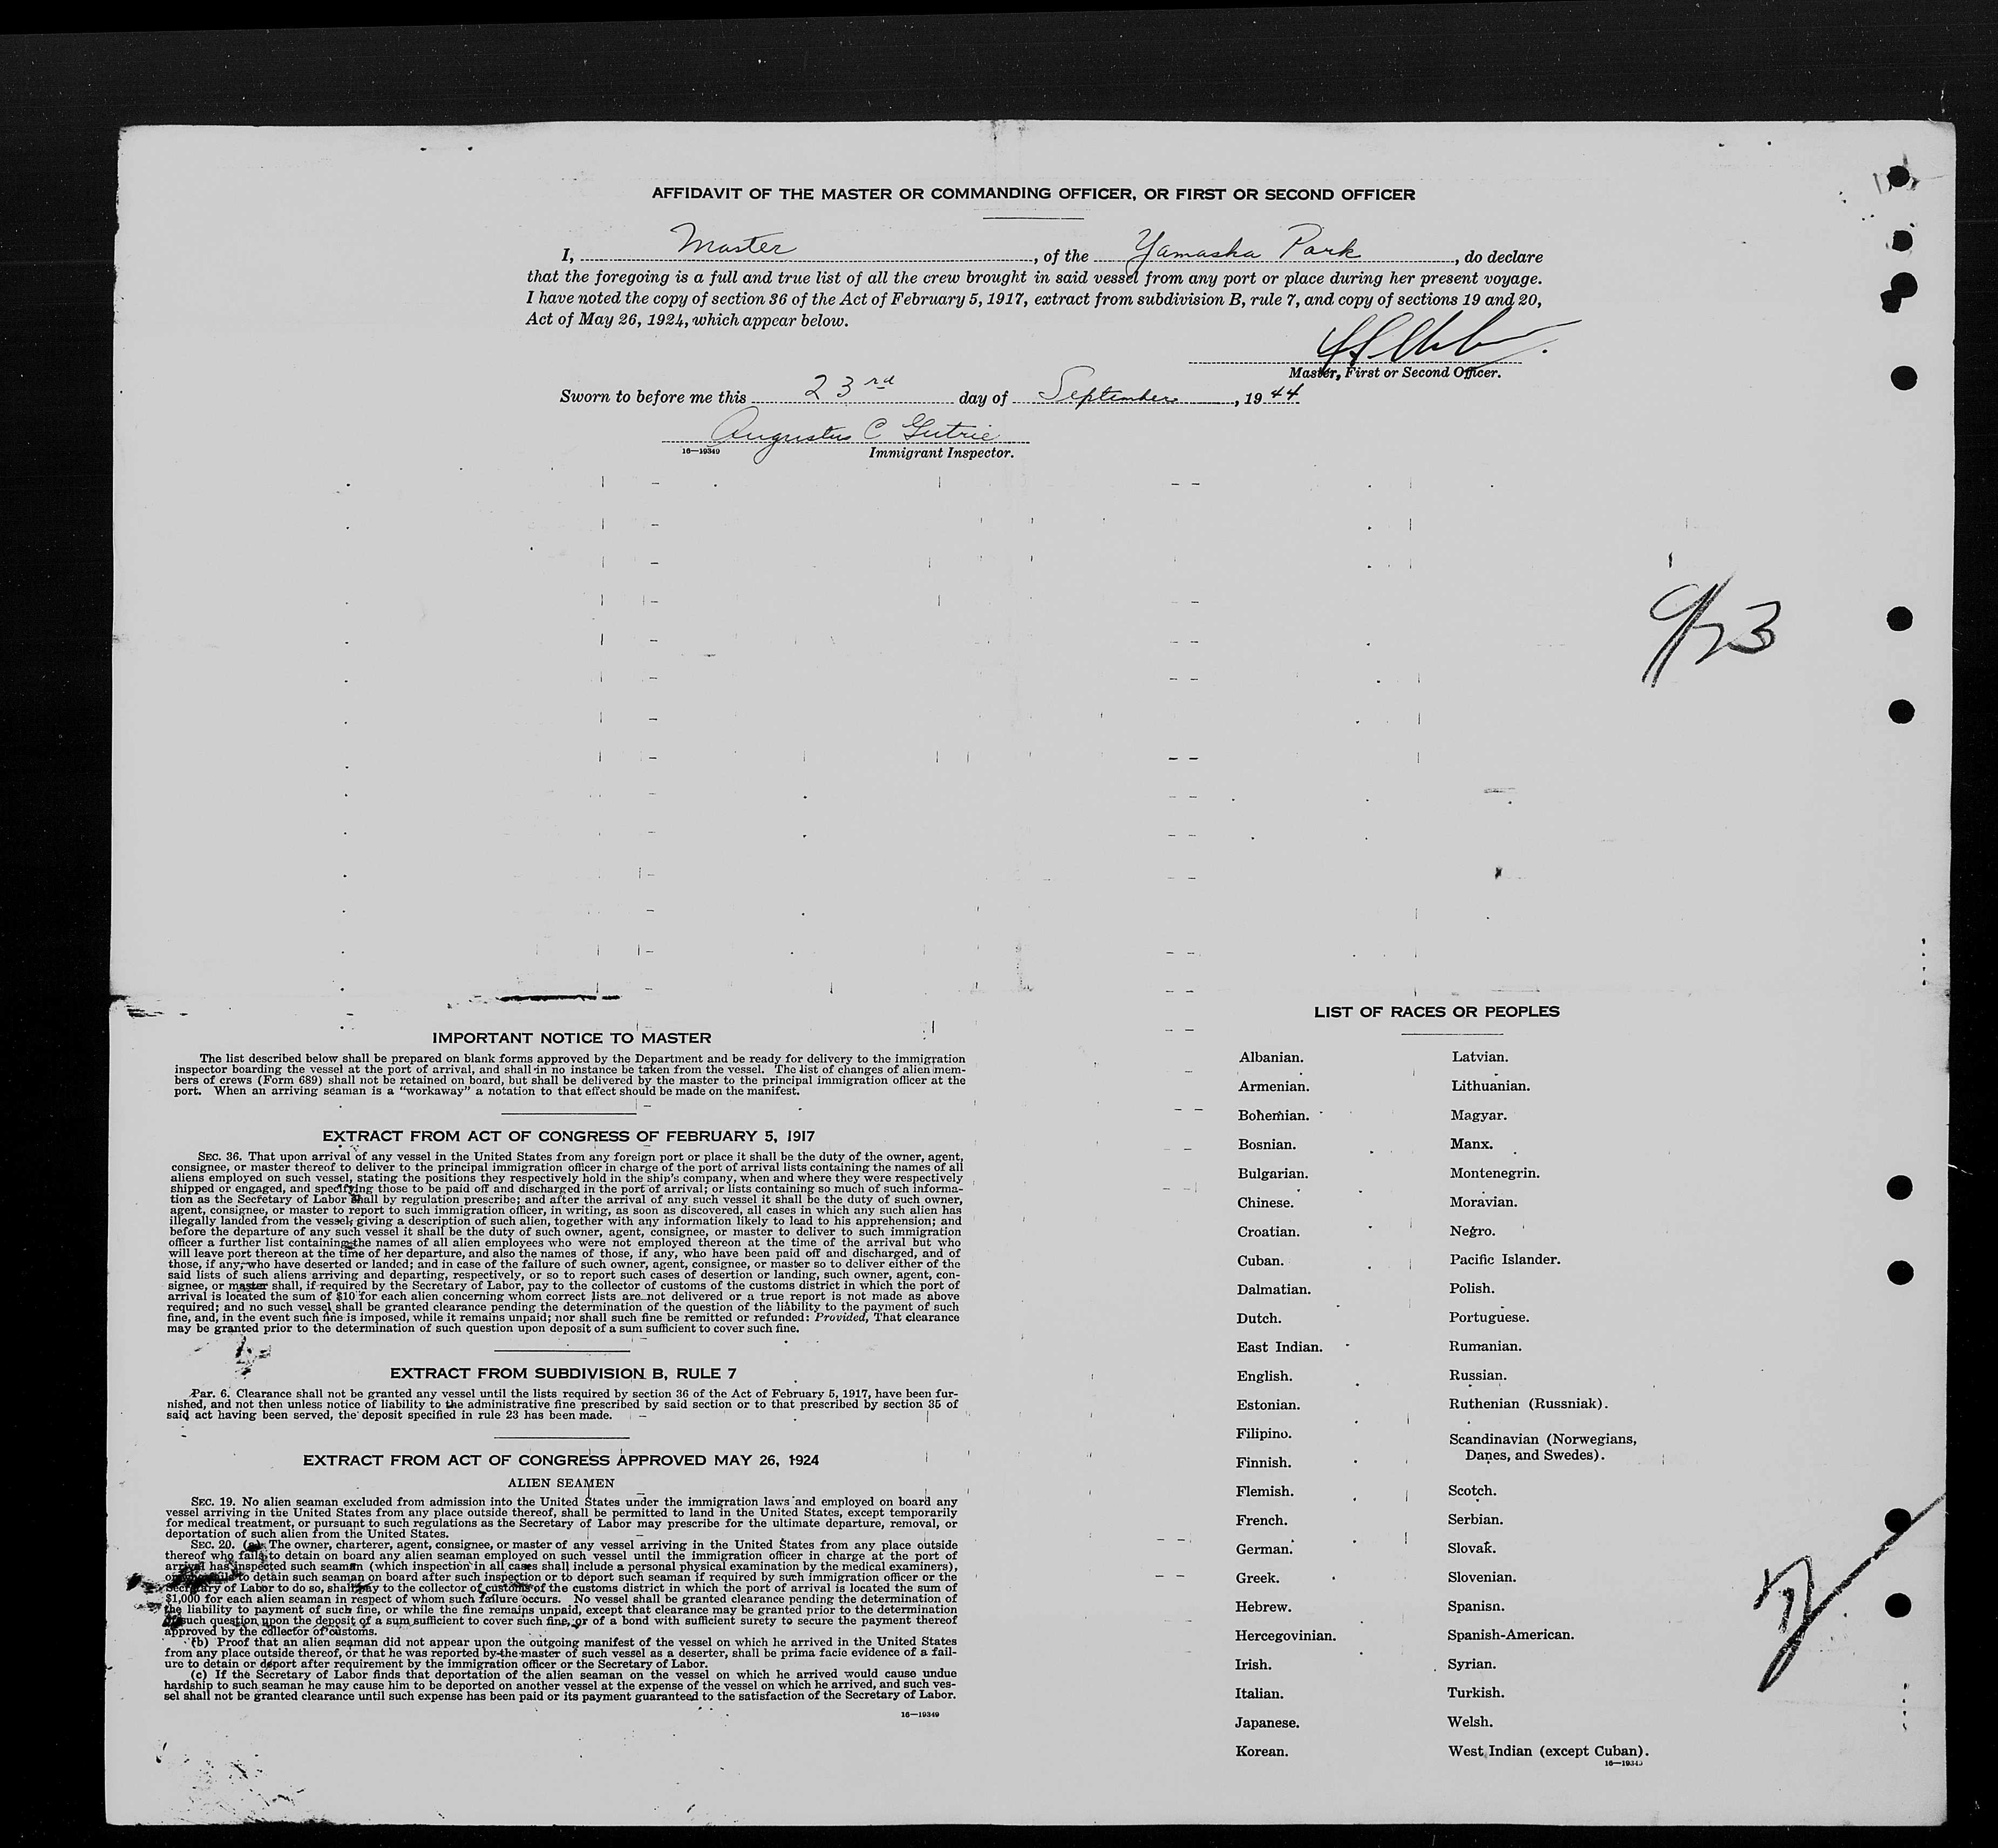 AFFIDAVIT OF THE MASTER OR COMMANDING OFFICER, OR FIRST OR SECOND OFFICER
I, Master, of the Yamaska Park, do declare
that the foregoing is a full and true list of all the crew brought in said vessel from any port or place during her present voyage.
I have noted the copy of section 36 of the Act of February 5, 1917, extract from subdivision B, rule 7, and copy of sections 19 and 20,
Act of May 26, 1924, which appear below.
Master, First or Second Officer.
Sworn to before me this 23rd day of September, 1944
Augustus C Gutrie
16—19349 Immigrant Inspector.
9/23
IMPORTANT NOTICE TO MASTER
The list described below shall be prepared on blank forms approved by the Department and be ready for delivery to the immigration
inspector boarding the vessel at the port of arrival, and shall in no instance be taken from the vessel. The list of changes of alien mem-
bers of crews (Form 689) shall not be retained on board, but shall be delivered by the master to the principal immigration officer at the
port. When an arriving seaman is a "workaway" a notation to that effect should be made on the manifest.
EXTRACT FROM ACT OF CONGRESS OF FEBRUARY 5, 1917
SEC. 36. That upon arrival of any vessel in the United States from any foreign port or place it shall be the duty of the owner, agent,
consignee, or master thereof to deliver to the principal immigration officer in charge of the port of arrival lists containing the names of all
aliens employed on such vessel, stating the positions they respectively hold in the ship's company, when and where they were respectively
shipped or engaged, and specifying those to be paid off and discharged in the port of arrival; or lists containing so much of such informa-
tion as the Secretary of Labor shall by regulation prescribe; and after the arrival of any such vessel it shall be the duty of such owner,
agent, consignee, or master to report to such immigration officer, in writing, as soon as discovered, all cases in which any such alien has
illegally landed from the vessel, giving a description of such alien, together with any information likely to lead to his apprehension; and
before the departure of any such vessel it shall be the duty of such owner, agent, consignee, or master to deliver to such immigration
officer a further list containing the names of all alien employees who were not employed thereon at the time of the arrival but who
will leave port thereon at the time of her departure, and also the names of those, if any, who have been paid off and discharged, and of
those, if any, who have deserted or landed; and in case of the failure of such owner, agent, consignee, or master so to deliver either of the
said lists of such aliens arriving and departing, respectively, or so to report such cases of desertion or landing, such owner, agent, con-
signee, or master shall, if required by the Secretary of Labor, pay to the collector of customs of the customs district in which the port of
arrival is located the sum of $10 for each alien concerning whom correct lists are not delivered or a true report is not made as above
required; and no such vessel shall be granted clearance pending the determination of the question of the liability to the payment of such
fine, and, in the event such fine is imposed, while it remains unpaid; nor shall such fine be remitted or refunded: Provided, That clearance
may be granted prior to the determination of such question upon deposit of a sum sufficient to cover such fine.
EXTRACT FROM SUBDIVISION B, RULE 7
Par. 6. Clearance shall not be granted any vessel until the lists required by section 36 of the Act of February 5, 1917, have been fur-
nished, and not then unless notice of liability to the administrative fine prescribed by said section or to that prescribed by section 35 of
said act having been served, the deposit specified in rule 23 has been made.
EXTRACT FROM ACT OF CONGRESS APPROVED MAY 26, 1924
ALIEN SEAMEN
SEC. 19. No alien seaman excluded from admission into the United States under the immigration laws and employed on board any
vessel arriving in the United States from any place outside thereof, shall be permitted to land in the United States, except temporarily
for medical treatment, or pursuant to such regulations as the Secretary of Labor may prescribe for the ultimate departure, removal, or
deportation of such alien from the United States.
SEC. 20. (a) The owner, charterer, agent, consignee, or master of any vessel arriving in the United States from any place outside
thereof who fails to detain on board any alien seaman employed on such vessel until the immigration officer in charge at the port of
arrival has inspected such seaman (which inspection in all cases shall include a personal physical examination by the medical examiners),
or who fails to detain such seaman on board after such inspection or to deport such seaman if required by such immigration officer or the
Secretary of Labor to do so, shall pay to the collector of customs of the customs district in which the port of arrival is located the sum of
$1,000 for each alien seaman in respect of whom such failure occurs. No vessel shall be granted clearance pending the determination of
the liability to payment of such fine, or while the fine remains unpaid, except that clearance may be granted prior to the determination
of such question upon the deposit of a sum sufficient to cover such fine, or of a bond with sufficient surety to secure the payment thereof
approved by the collector of customs.
(b) Proof that an alien seaman did not appear upon the outgoing manifest of the vessel on which he arrived in the United States
from any place outside thereof, or that he was reported by the master of such vessel as a deserter, shall be prima facie evidence of a fail-
ure to detain or deport after requirement by the immigration officer or the Secretary of Labor.
(c) If the Secretary of Labor finds that deportation of the alien seaman on the vessel on which he arrived would cause undue
hardship to such seaman he may cause him to be deported on another vessel at the expense of the vessel on which he arrived, and such ves-
sel shall not be granted clearance until such expense has been paid or its payment guaranteed to the satisfaction of the Secretary of Labor.
16—19349
LIST OF RACES OR PEOPLES
Albanian.
Armenian.
Bohemian.
Bosnian.
Bulgarian.
Chinese.
Croatian.
Cuban.
Dalmatian.
Dutch.
East Indian.
English.
Estonian.
Filipino.
Finnish.
Flemish.
French.
German.
Greek.
Hebrew.
Hercegovinian.
Irish.
Italian.
Japanese.
Korean.
Latvian.
Lithuanian.
Magyar.
Manx.
Montenegrin.
Moravian.
Negro.
Pacific Islander.
Polish.
Portuguese.
Rumanian.
Russian.
Ruthenian (Russniak).
Scandinavian (Norwegians,
Danes, and Swedes).
Scotch.
Serbian.
Slovak.
Slovenian.
Spanish.
Spanish-American.
Syrian.
Turkish.
Welsh.
West Indian (except Cuban).
16—19349